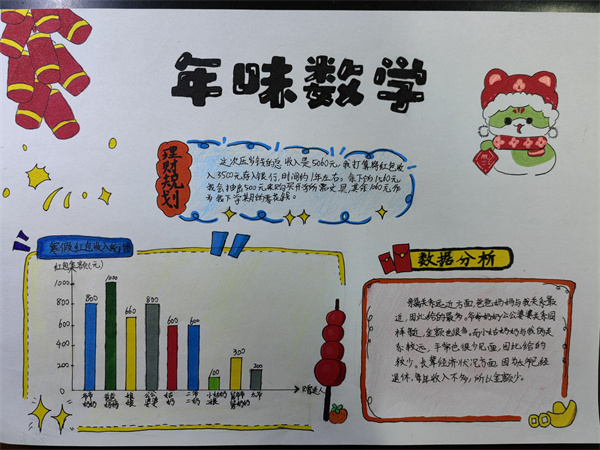 年味数学
理财规划
这次压岁钱的总收入是5060元,我打算将红包收
入3500元存入银行,时间约1年左右。余下的1560元
我会抽出500元来购买开学所需文具,其余1060元作
为下学期的零花钱。
寒假红包收入
红包金额(元)
1000
800
600
400
200
0
800
1000
660
800
600
600
100
300
200
爷爷奶奶
爸爸妈妈
姐姐
公公婆婆
姑奶
二爷二奶
数据分析
亲属关系远近方面,爸爸妈妈与我关系最
近,因此给的最多。爷爷奶奶公公婆婆关系同
样近,金额也很多。而小姑奶奶与我的关
系较远,平常也很少见面,因此给的
较少。长辈经济状况方面,因为
退休,每年收入不多,所以金额少。